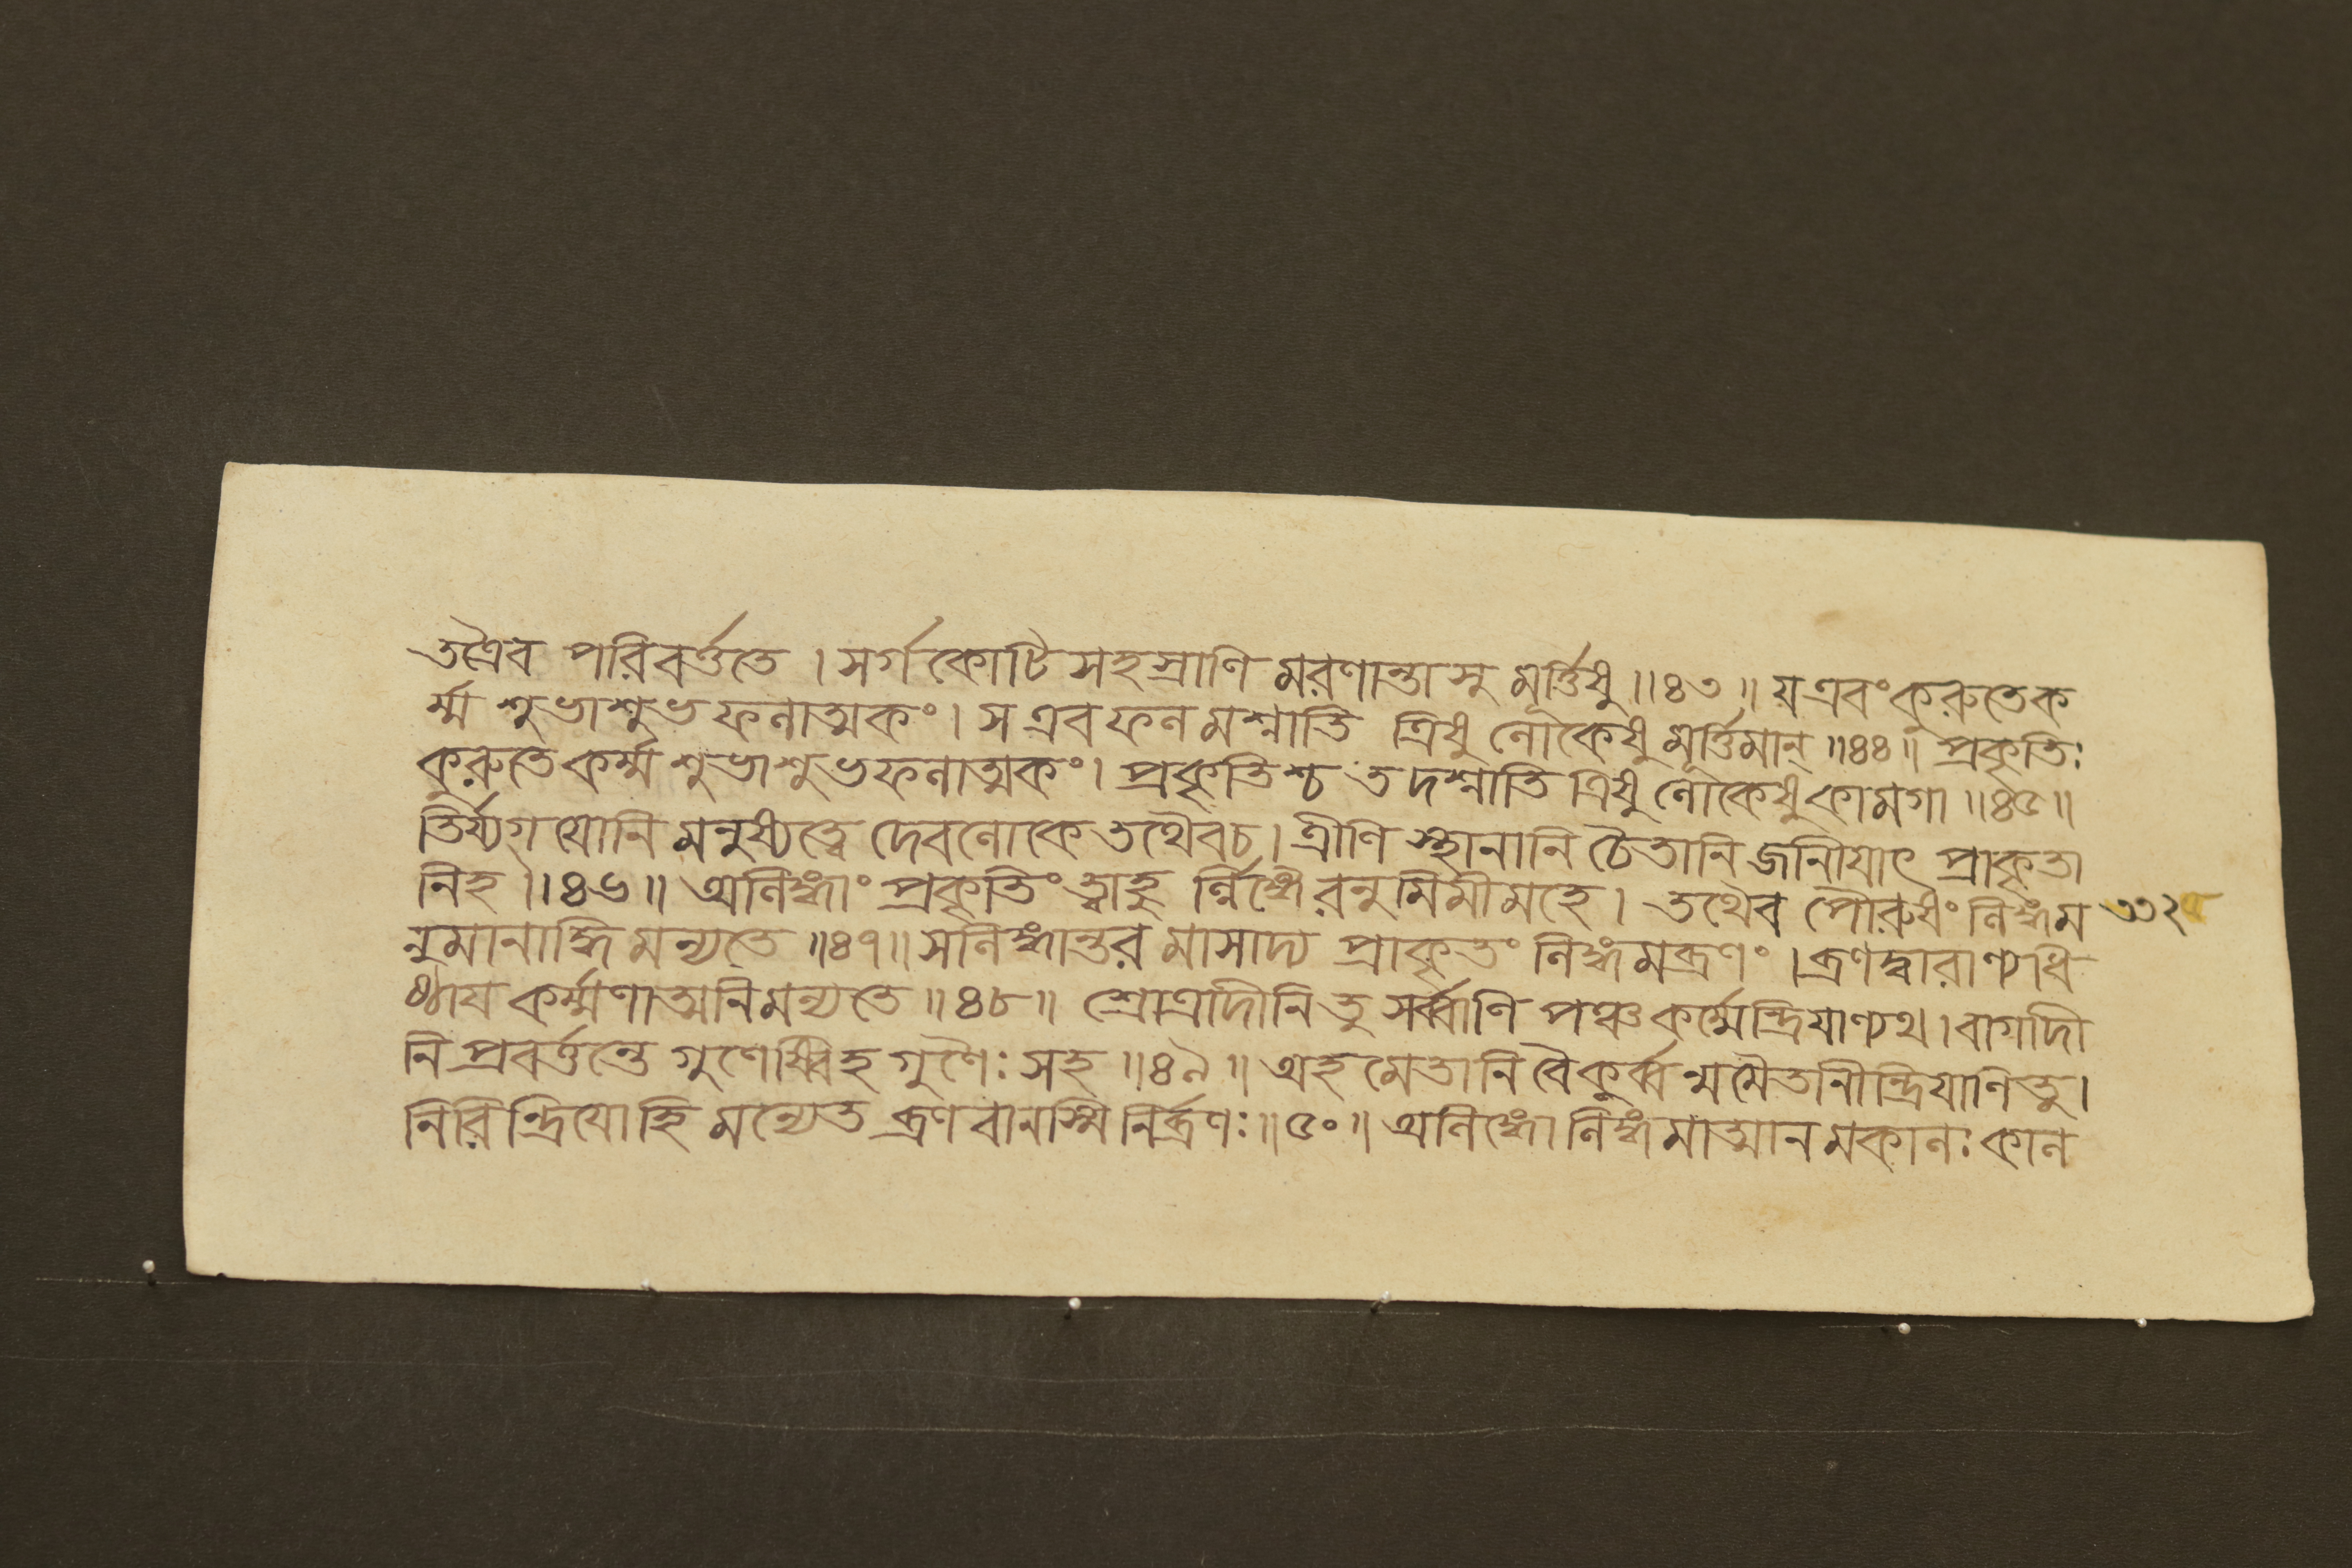 তত্রৈব পরিবর্ত্ততে । সর্গকোটিসহস্রাণি মরণান্তাসু মূর্ত্তিষু ॥৪৩॥ য এবং কুরুতে ক
র্ম্ম শুভাশুভফলাত্মকং । স এব ফলমশ্নাতি ত্রিষু লোকেষু মূর্ত্তিমান্ ॥৪৪॥ প্রকৃতিঃ
কুরুতে কর্ম্ম শুভাশুভফলাত্মকং । প্রকৃতিশ্চ তদশ্নাতি ত্রিষু লোকেষু কামগা ॥৪৫॥
তির্য্যগ্ যোনি মনুষ্যত্বে দেবলোকে তথৈবচ । ত্রীণি স্থানানি চৈতানি জানীয়াৎ প্রাকৃতা
নিহ ॥৪৬॥ অলিঙ্গাং প্রকৃতিং ত্বাহু র্ল্লিঙ্গৈরনুমিমীমহে । তথৈব পৌরুষং লিঙ্গম
নুমানাদ্ধি মন্যতে ॥৪৭॥ স লিঙ্গান্তরমাসাদ্য প্রাকৃতং লিঙ্গমব্রণং । ব্রণদ্বারাণ্যধি
ষ্ঠায় কর্ম্মণাত্মনি মন্যতে ॥৪৮॥ শ্রোত্রাদীনি তু সর্ব্বাণি পঞ্চকর্ম্মেন্দ্রিয়াণ্যথ । বাগাদী
নি প্রবর্ত্তন্তে গুণেষ্বিহ গুণৈঃ সহ ॥৪৯॥ অহমেতানি বৈ কুর্ব্বন্মমৈতানীন্দ্রিয়ানি তু ।
নিরিন্দ্রিয়োহি মন্যেত ব্রণবানস্মি নির্ব্রণঃ ॥৫০॥ অলিঙ্গো লিঙ্গমাত্মানমকালঃ কাল
৩৩২